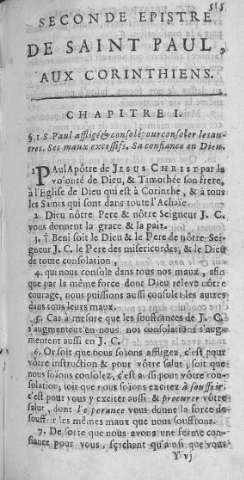 515
SECONDE EPISTRE
DE SAINT PAUL,
AUX CORINTHIENS.
CHAPITRE I.
§. 1. S. Paul affligé & consolé pour consoler les au-
tres. Ses maux excessifs. Sa confiance en Dieu.
1. PAul Apôtre de JESUS CHRIST par la
volonté de Dieu, & Timothée son frere,
à l'Eglise de Dieu qui est à Corinthe, & à tous
les Saints qui sont dans toute l'Achaïe.
2. Dieu nôtre Pere & nôtre Seigneur J. C.
vous donnent la grace & la paix.
3. † Beni soit le Dieu & le Pere de nôtre Sei-
gneur J. C. le Pere des misericordes, & le Dieu
de toute consolation,
4. qui nous console dans tous nos maux, afin
que par la même force dont Dieu releve nôtre
courage, nous puissions aussi consoler les autres
dans tous leurs maux.
5. Car à mesure que les souffrances de J. C.
s'augmentent en nous, nos consolations s'aug-
mentent aussi en J. C.
6. Or soit que nous soyons affligez, c'est pour
vôtre instruction & pour vôtre salut; soit que
nous soyons consolez, c'est aussi pour vôtre con-
solation, soit que nous soyons excitez à souffrir,
c'est pour vous y exciter aussi & procurer vôtre
salut, dont l'esperance vous donne la force de
souffrir les mêmes maux que nous souffrons.
7. De sorte que nous avons une ferme con-
fiance pour vous, sçachant qu'ainsi que vous
Y vj